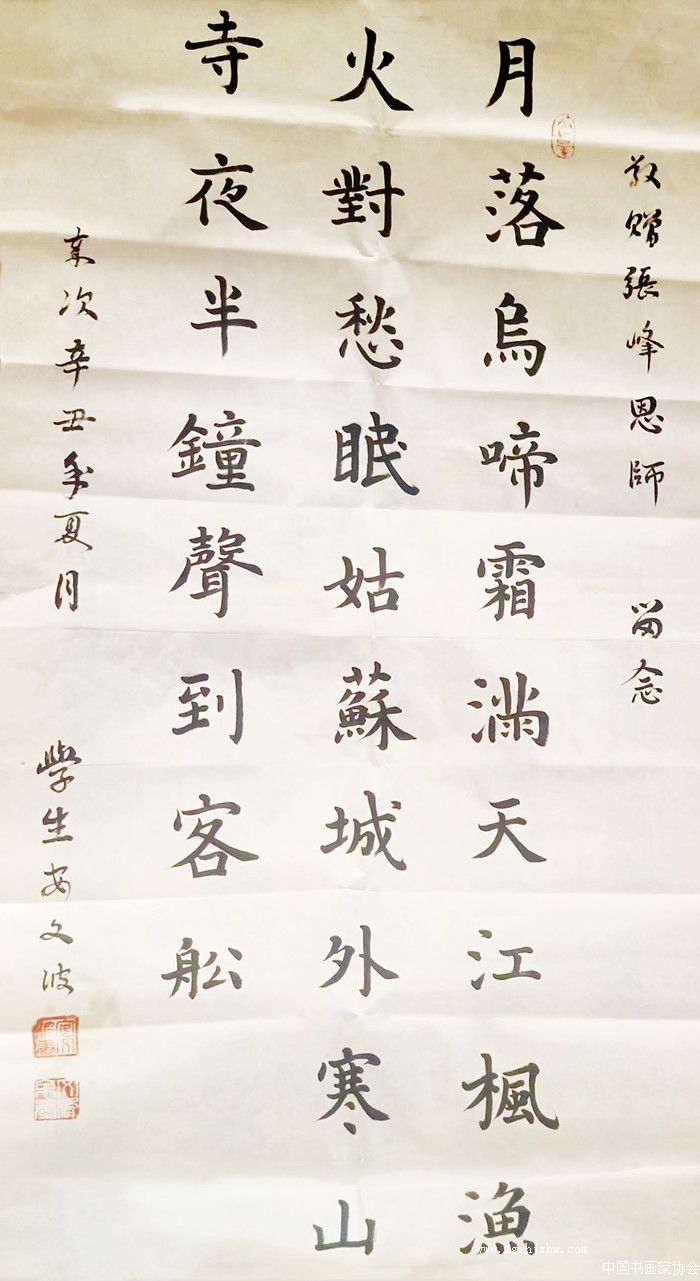 敬贈張峰恩師 留念
月落烏啼霜滿天江楓漁
火對愁眠姑蘇城外寒山
寺夜半鐘聲到客舩
歲次辛丑年夏月 學生安文波
中国书画家协会